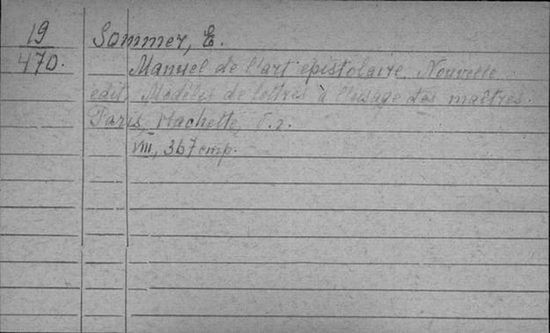 19
470.
Sommer, E.
Manuel de l'art épistolaire. Nouvelle
edit. Modèles de lettres à l'usage des maîtres.
Paris, Hachette, Б.г.
VIII, 367 стр.